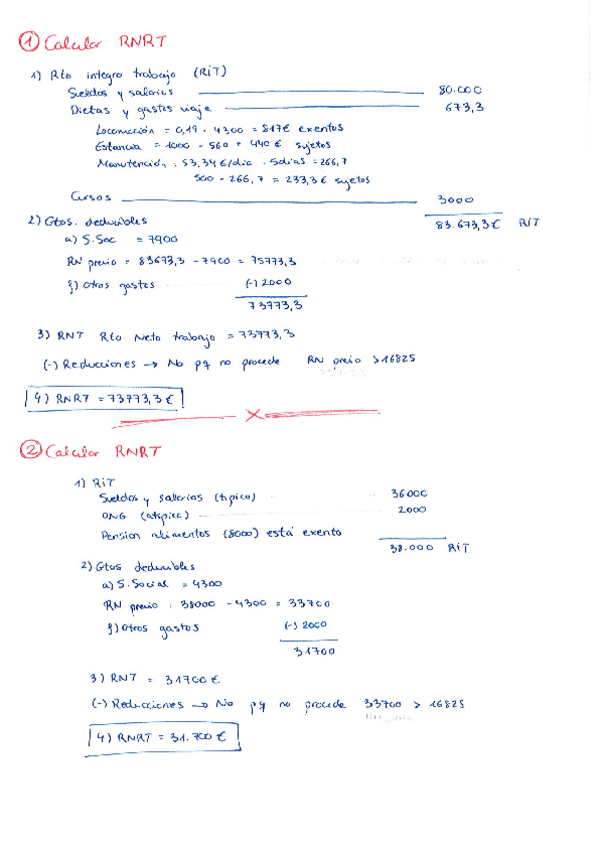 ① Calcular RNRT
1) Rto integro trabajo (RiT)
Sueldos y salarios 80.000
Dietas y gastos viaje 673,3
Locomoción = 0,19 · 4300 = 817€ exentos
Estancia = 1000 - 560 = 440 € sujetos
Manutención : 53,34€/dia · 5dias = 266,7
500 - 266,7 = 233,3€ sujetos
Cursos 3000
2) Gtos. deducibles 83.673,3€ RiT
a) S.Soc = 7900
RN previo = 83673,3 - 7900 = 75773,3
f) Otros gastos (-) 2000
73773,3
3) RNT Rto Neto trabajo = 73773,3
(-) Reducciones → No pq no procede RN previo > 16825
4) RNRT = 73773,3€
② Calcular RNRT
1) RiT
Sueldos y salarios (tipico) 36000
ONG (atipico) 2000
Pension alimentos (8000) está exento
38.000 RiT
2) Gtos deducibles
a) S.Social = 4300
RN previo : 38000 - 4300 = 33700
f) Otros gastos (-) 2000
31700
3) RNT = 31700€
(-) Reducciones → No pq no procede 33700 > 16825
4) RNRT = 31.700€